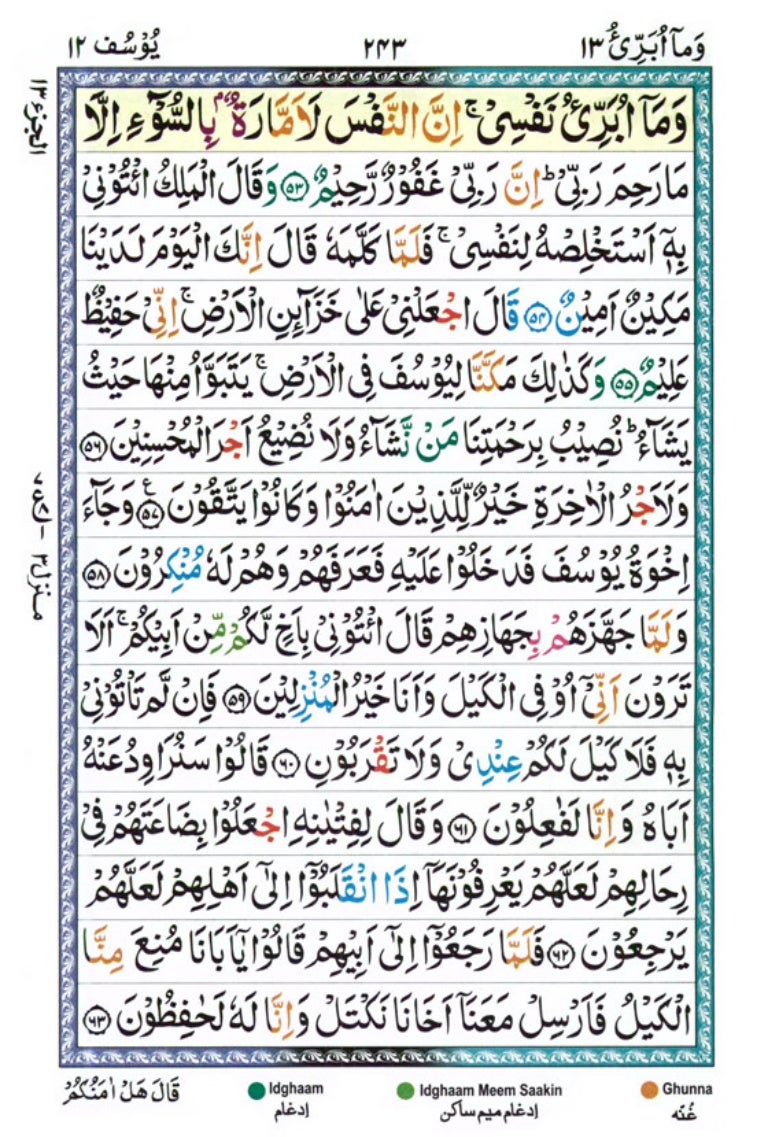 وَمَاۤ اُبَرِّئُ ١٣
٢٤٣
يُوْسُف ١٢
الجزء ١٣
وَمَاۤ اُبَرِّئُ نَفْسِیْ ۚ اِنَّ النَّفْسَ لَاَمَّارَةٌۢ بِالسُّوْٓءِ اِلَّا
مَا رَحِمَ رَبِّیْ ؕ اِنَّ رَبِّیْ غَفُوْرٌ رَّحِیْمٌ ﴿۵۳﴾ وَقَالَ الْمَلِكُ ائْتُوْنِیْ
بِهٖۤ اَسْتَخْلِصْهُ لِنَفْسِیْ ۚ فَلَمَّا كَلَّمَهٗ قَالَ اِنَّكَ الْیَوْمَ لَدَیْنَا
مَكِیْنٌ اَمِیْنٌ ﴿۵۴﴾ قَالَ اجْعَلْنِیْ عَلٰی خَزَآئِنِ الْاَرْضِ ۚ اِنِّیْ حَفِیْظٌ
عَلِیْمٌ ﴿۵۵﴾ وَكَذٰلِكَ مَكَّنَّا لِیُوْسُفَ فِی الْاَرْضِ ۚ یَتَبَوَّاُ مِنْهَا حَیْثُ
یَشَآءُ ؕ نُصِیْبُ بِرَحْمَتِنَا مَنْ نَّشَآءُ وَلَا نُضِیْعُ اَجْرَ الْمُحْسِنِیْنَ ﴿۵۶﴾
وَلَاَجْرُ الْاٰخِرَةِ خَیْرٌ لِّلَّذِیْنَ اٰمَنُوْا وَكَانُوْا یَتَّقُوْنَ ﴿۵۷﴾ ع وَجَآءَ
اِخْوَةُ یُوْسُفَ فَدَخَلُوْا عَلَیْهِ فَعَرَفَهُمْ وَهُمْ لَهٗ مُنْكِرُوْنَ ﴿۵۸﴾
وَلَمَّا جَهَّزَهُمْ بِجَهَازِهِمْ قَالَ ائْتُوْنِیْ بِاَخٍ لَّكُمْ مِّنْ اَبِیْكُمْ ۚ اَلَا
تَرَوْنَ اَنِّیْۤ اُوْفِی الْكَیْلَ وَاَنَا خَیْرُ الْمُنْزِلِیْنَ ﴿۵۹﴾ فَاِنْ لَّمْ تَاْتُوْنِیْ
بِهٖ فَلَا كَیْلَ لَكُمْ عِنْدِیْ وَلَا تَقْرَبُوْنِ ﴿۶۰﴾ قَالُوْا سَنُرَاوِدُ عَنْهُ
اَبَاهُ وَاِنَّا لَفٰعِلُوْنَ ﴿۶۱﴾ وَقَالَ لِفِتْیٰنِهِ اجْعَلُوْا بِضَاعَتَهُمْ فِیْ
رِحَالِهِمْ لَعَلَّهُمْ یَعْرِفُوْنَهَاۤ اِذَا انْقَلَبُوْۤا اِلٰۤی اَهْلِهِمْ لَعَلَّهُمْ
یَرْجِعُوْنَ ﴿۶۲﴾ فَلَمَّا رَجَعُوْۤا اِلٰۤی اَبِیْهِمْ قَالُوْا یٰۤاَبَانَا مُنِعَ مِنَّا
الْكَیْلُ فَاَرْسِلْ مَعَنَاۤ اَخَانَا نَكْتَلْ وَاِنَّا لَهٗ لَحٰفِظُوْنَ ﴿۶۳﴾
منزل ٣
قَالَ هَلْ اٰمَنُكُمْ
Idghaam
ادغام
Idghaam Meem Saakin
ادغام میم ساکن
Ghunna
غُنّه